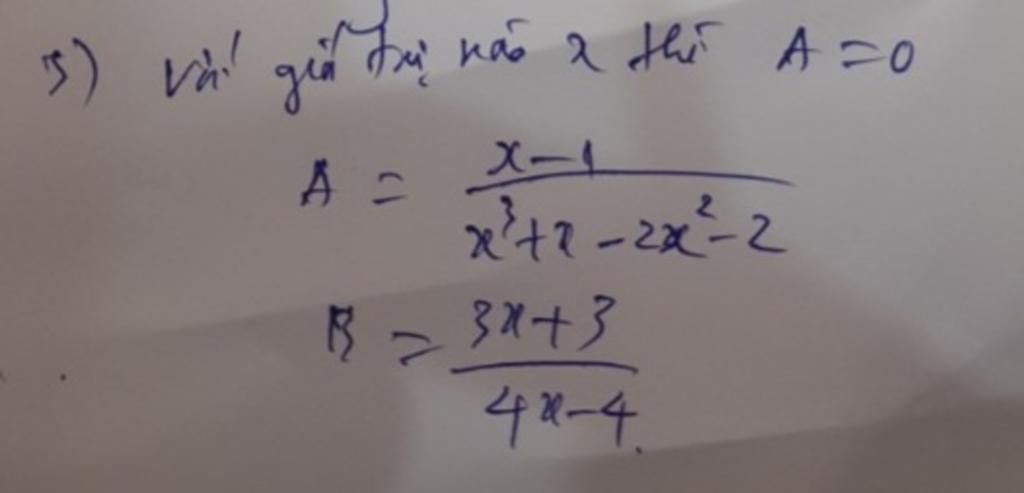 3) Với giá trị nào x thì A = 0
A = \frac{x-1}{x^3+x-2x^2-2}
B = \frac{3x+3}{4x-4}